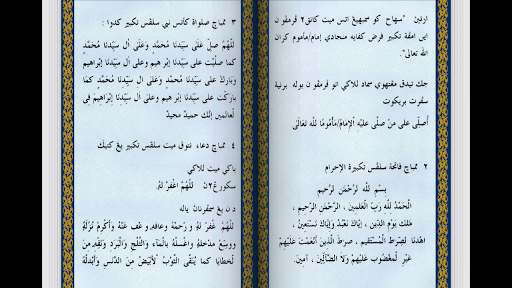 ارتين "سهاج كو سمبهيڠ اتس ميت كانق٢ ڤرمڤون
اين امڤة تكبير فرض كفايه منجادي إمام/مأموم كران
الله تعالى".
جك تيدق مڠتهوي سماد للاكي اتو ڤرمڤون بوله برنية
سڤرت بريكوت
أُصَلِّى عَلَى مَنْ صَلَّى عَلَيْهِ الْإِمَامُ/مَأْمُومًا لِلَّهِ تَعَالَى
٢ ممباچ فاتحة سلڤس تكبيرة الإحرام
بِسْمِ اللَّهِ الرَّحْمَنِ الرَّحِيمِ
الْحَمْدُ لِلَّهِ رَبِّ الْعَلَمِينَ ، الرَّحْمَنِ الرَّحِيمِ ،
مَلِكِ يَوْمِ الدِّينِ ، إِيَّاكَ نَعْبُدُ وَإِيَّاكَ نَسْتَعِينُ ،
اهْدِنَا الصِّرَطَ الْمُسْتَقِيمَ ، صِرَطَ الَّذِينَ أَنْعَمْتَ عَلَيْهِمْ
غَيْرِ الْمَغْضُوبِ عَلَيْهِمْ وَلَا الضَّالِّينَ ، آمين.
٣ ممباچ صلواة كأتس نبي سلڤس تكبير كدوا :
اللَّهُمَّ صَلِّ عَلَى سَيِّدِنَا مُحَمَّدٍ وَعَلَى آلِ سَيِّدِنَا مُحَمَّدٍ
كما صَلَّيْتَ على سَيِّدِنَا إِبْرَهِيم وعلى آلِ سَيِّدِنَا إِبْرَاهِيم
وَبَارِكْ عَلَى سَيِّدِنَا مُحَمَّدٍ وَعَلَى آلِ سَيِّدِنَا مُحَمَّدٍ كَمَا
بَارَكْتَ على سَيِّدِنَا إِبْرَهِيم وعلى آلِ سَيِّدِنَا إِبْرَهِيم فى
الْعَالَمِينَ إِنَّكَ حميدٌ مجيدٌ
٤ ممباچ دعاء ٔنتوق ميت سلڤس تكبير يڠ كتيݢ
باݢي ميت للاكي
سكورڠ٢ن اللَّهُمَّ اغْفِرْ لَهُ
دن يڠ سمڤرنان ياله
اللَّهُمَّ اغْفِرْ لَهُ وَارْحَمْهُ وعافِهِ وَاعْفُ عَنْهُ وَأَكْرِمْ نُزُلَهُ
ووسِّعْ مدخلَهُ واغْسِلْهُ بالْمَاءِ والثَّلْجِ وَالْبَرَدِ وَنَقِّهِ مِنَ
الْخَطَايَا كما يُنَقَّى الثَّوْبُ الْأَبْيَضُ مِنَ الدَّنَسِ وَأَبْدِلْهُ